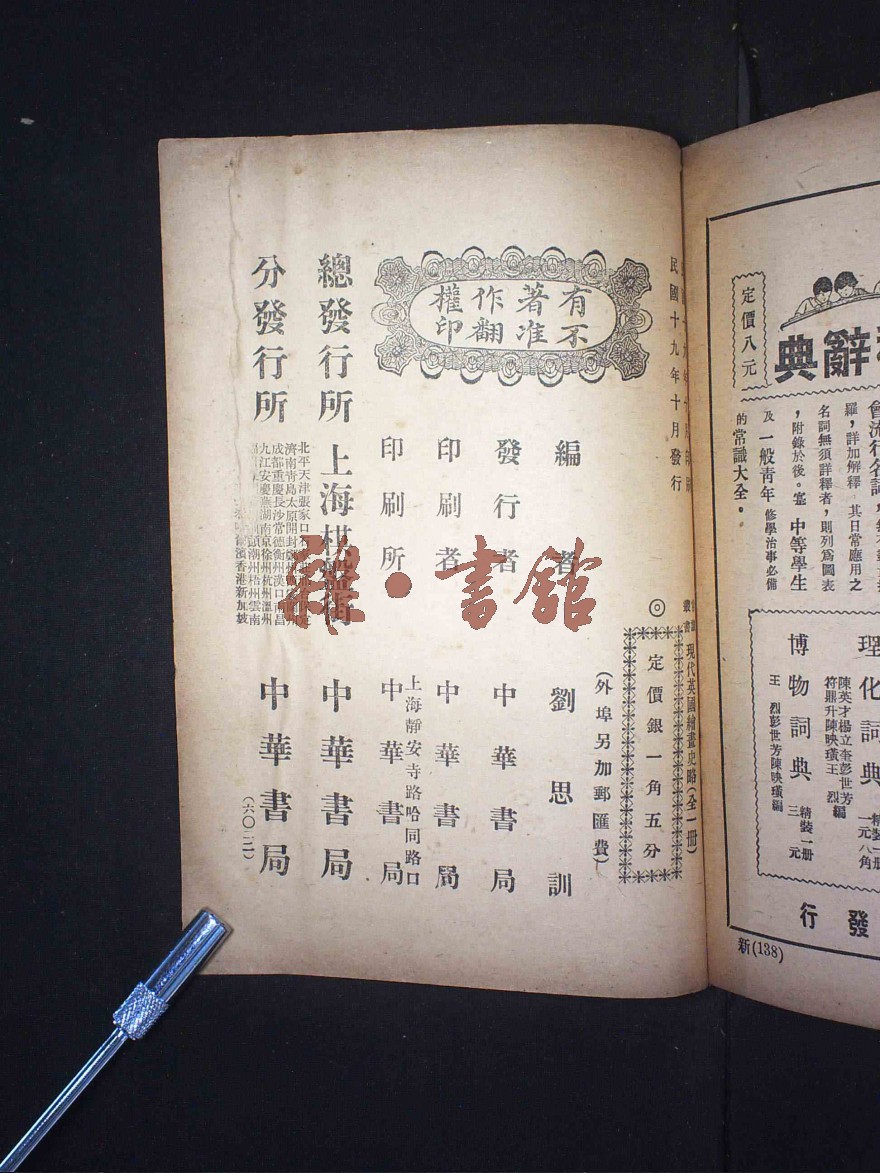 民國十九年十月發行
有著作權
不准翻印
叢書
現代英國繪畫史略(全一冊)
◎
定價銀一角五分
(外埠另加郵匯費)
編者
劉思訓
發行者
中華書局
印刷者
中華書局
印刷所
上海靜安寺路哈同路口
中華書局
總發行所
上海棋盤街
中華書局
分發行所
北平天津張家口
濟南青島太原開封
成都重慶長沙常德衡州漢口南昌
九江安慶蕪湖南京徐州杭州溫州
頭潮州梧州雲南
濱香港新加坡
中華書局
(六〇二一)
雜·書館
辭典
定價八元
會流行名詞
羅,詳加解釋 其日常應用之
名詞無須詳釋者,則列為圖表
,附錄於後。寔 中等學生
及 一般青年 修學治事必備
的常識大全。
理化詞典
陳英才楊立奎彭世芳
符鼎升陳映璜王 烈編
精裝一冊
一元八角
博物詞典
王 烈彭世芳陳映璜編
精裝一冊
三 元
發行
新(138)